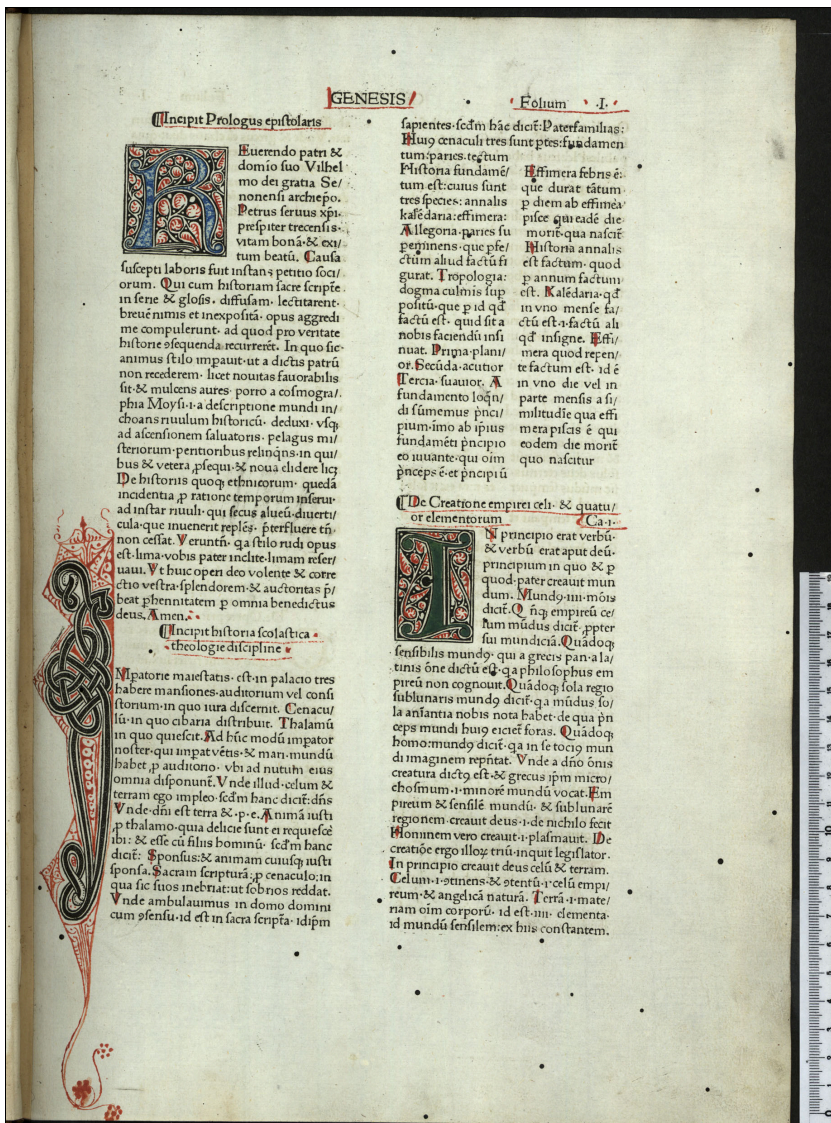 GENESIS
Folium .I.
Incipit Prologus epistolaris
REuerendo patri &
domīo suo Vilhel
mo dei gratia Se/
nonensi archiep̄o.
Petrus seruus xp̄i.
presp̄iter trecensis.
vitam bonā. & exi/
tum beatū. Causa
suscepti laboris fuit instans petitio soci/
orum. Qui cum historiam sacre scripte
in serie & glosis. diffusam. lectitarent.
breuē nimis et inexpositā. opus aggredi
me compulerunt. ad quod pro veritate
historie ꝯsequenda recurrerēt. In quo sic
animus stilo imꝑauit. ut a dictis patrū
non recederem. licet nouitas fauorabilis
sit. & mulcens aures. porro a cosmogra/
phia Moysi. i. a descriptione mundi in/
choans riuulum historicū. deduxi. vsq;
ad ascensionem saluatoris. pelagus mi/
steriorum. peritioribus relinq̄ns. in qui/
bus & vetera ꝓsequi. & noua elidere lic;
De historiis quoq; ethnicorum. quedā
incidentia ꝓ ratione temporum inserui.
ad instar riuuli. qui secus alueū. diuerti/
cula. que inuenerit replēs. p̄terfluere tn̄
non cessat. Veruntn̄. qa stilo rudi opus
est. lima. vobis pater inclite. limam reser/
uaui. Vt huic operi deo volente & corre
ctio vestra. splendorem. & auctoritas p̄/
beat ꝑhennitatem ꝑ omnia benedictus
deus. Amen.
Incipit historia scolastica
theologie discipline
INꝑatorie maiestatis. est. in palacio tres
habere mansiones. auditorium vel consi
storium. in quo iura discernit. Cenacu/
lū. in quo cibaria distribuit. Thalamū
in quo quiescit. Ad hūc modū imꝑator
noster. qui imꝑat vētis. & mari. mundū
habet ꝓ auditorio. vbi ad nutum eius
omnia disponunt̄. Vnde illud. celum &
terram ego impleo. scd̄m hanc dicit̄: dn̄s
Vnde. dn̄i est terra & .p. e. Animā iusti
ꝓ thalamo. quia delicie sunt ei requiescē
ibi: & esse cū filiis hominū. scd̄m hanc
dicit̄: Sponsus: & animam cuiusq; iusti
sponsa. Sacram scripturā: ꝓ cenaculo: in
qua sic suos inebriat: ut sobrios reddat.
Vnde ambulauimus in domo domini
cum ꝯsensu. id est in sacra scripta. idip̄m
sapientes. scd̄m hāc dicit̄: Paterfamilias:
Huiꝰ cenaculi tres sunt ꝑtes: fundamen
tum: paries. tectum
Historia fundamē/
tum est: cuius sunt
tres species: annalis
kalēdaria: effimera:
Allegoria. paries su
ꝑeminens. que ꝑ fe/
ctum aliud factū fi
gurat. Tropologia:
dogma culmis sup
positū. que ꝑ id qd̄
factū est. quid sit a
nobis faciendū insi
nuat. Prima. plani/
or. Secūda. acutior
Tercia. suauior. A
fundamento loqn̄/
di sūmemus p̄nci/
pium. imo ab ip̄ius
fundamēti p̄ncipio
eo iuuante. qui oīm
p̄nceps ē. et p̄ncipiū
Effimera febris ē:
que durat tātum
ꝑ diem ab effimēa
pisce qui eadē die
morit̄. qua nascit̄
Historia annalis
est factum. quod
ꝑ annum factum
est. Kalēdaria. qd̄
in vno mense fa/
ctū est. i. factū ali
qd̄ insigne. Effi/
mera quod repen/
te factum est. id ē
in vno die vel in
parte mensis a si/
militudīe qua effi
mera piscis ē qui
eodem die morit̄
quo nascitur
De Creatione empirei celi. & quatu/
or elementorum Ca. i.
IN principio erat verbū
& verbū erat aput deū.
principium in quo & ꝑ
quod. pater creauit mun
dum. Mundꝰ. iiii. mōis
dicit̄. Qn̄q; empireū ce/
lum mūdus dicit̄. ꝓpter
sui mundiciā. Quādoq;
sensibilis mundꝰ. qui a grecis pan. a la/
tinis ōne dictū est. qa philosophus em
pireū non cognouit. Quādoq; sola regio
sublunaris mundꝰ dicit̄. qa mūdus so/
la anīantia nobis nota habet. de qua p̄n
ceps mundi huiꝰ eiciet̄ foras. Quādoq;
homo: mundꝰ dicit̄. qa in se tociꝰ mun
di imaginem repn̄tat. Vnde a dn̄o ōnis
creatura dictꝰ est. & grecus ip̄m micro/
chosmum. i. minorē mundū vocat. Em
pireum & sensilē mundū. & sublunarē
regionem. creauit deus. i. de nichilo fecit
Hominem vero creauit. i. plasmauit. De
creatiōe ergo illoꝝ triū. inquit legislator.
In principio creauit deus celū & terram.
Celum. i. ꝯtinens & ꝯtentū. i. celū empi/
reum. & angelicā naturā. Terrā. i. mate/
riam oīm corporū. id est. iiii. elementa.
id mundū sensilem: ex hiis constantem.